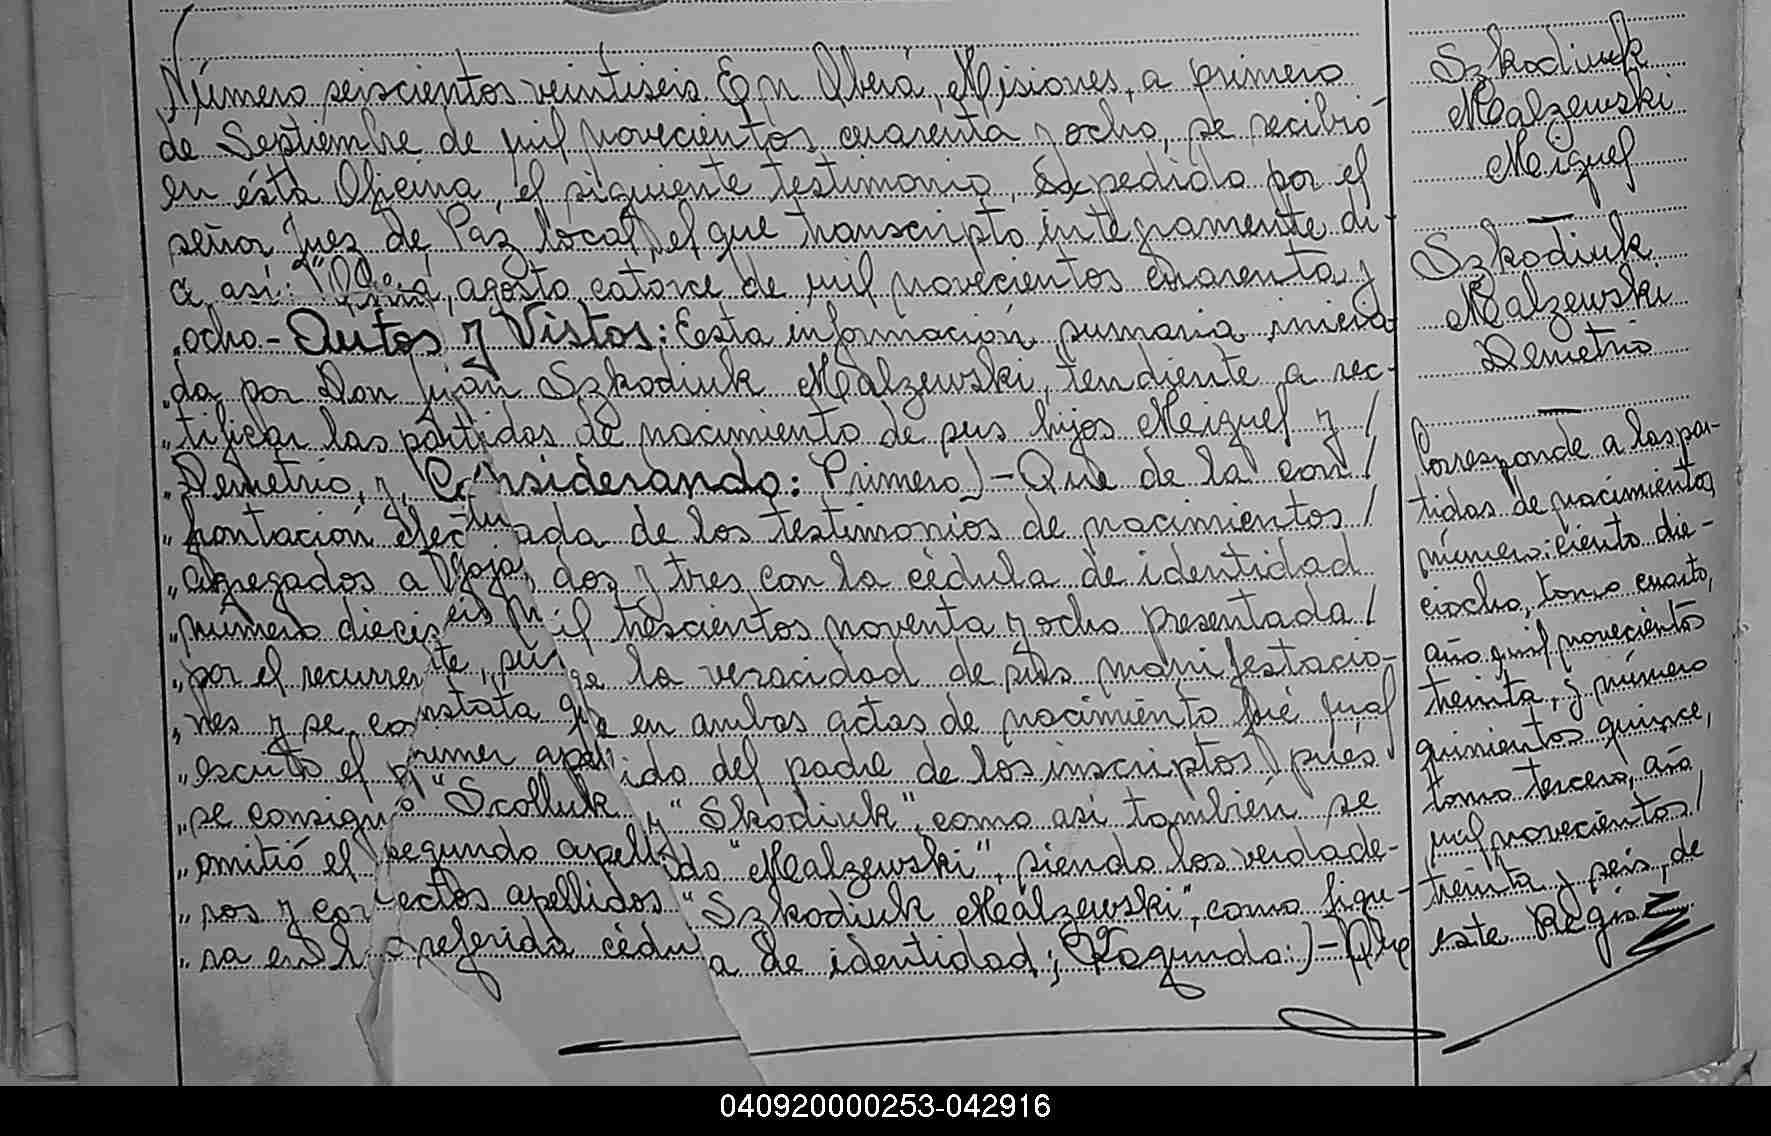 Número seiscientos veintiseis. En Oberá, Misiones, a primero
de Septiembre de mil novecientos cuarenta y ocho, se recibió
en ésta Oficina, el siguiente testimonio, Expedido por el
señor Juez de Paz local, el que transcripto integramente di-
ce así: "Oberá, agosto catorce de mil novecientos cuarenta y
ocho.- Autos y Vistos: Esta información sumaria inicia-
"da por Don Juan Szkodiuk Malzewski, tendiente a rec-
"tificar las partidas de nacimiento de sus hijos Miguel y /
"Demetrio, y, Considerando: Primero)- Que de la con /
"frontación efectuada de los testimonios de nacimientos /
"agregados a fojas dos y tres con la cédula de identidad
"número dieciseis mil trescientos noventa y ocho presentada /
"por el recurrente, surge la veracidad de sus manifestacio-
"nes y se constata que en ambas actas de nacimiento fué mal
"escrito el primer apellido del padre de los inscriptos, pués
"se consignó "Scolluk y "Skodiuk", como así también se
"omitió el segundo apellido "Malzewski", siendo los verdade-
"ros y correctos apellidos "Szkodiuk Malzewski", como figu-
"ra en la referida cédula de identidad; Segundo:)- Que
Szkodiuk
Malzewski
Miguel
Szkodiuk
Malzewski
Demetrio
Corresponde a las par-
tidas de nacimientos
número: ciento die-
ciocho, tomo cuarto,
año mil novecientos
treinta, y número
quinientos quince,
tomo tercero, año
mil novecientos /
treinta y seis, de
este Regis
040920000253-042916